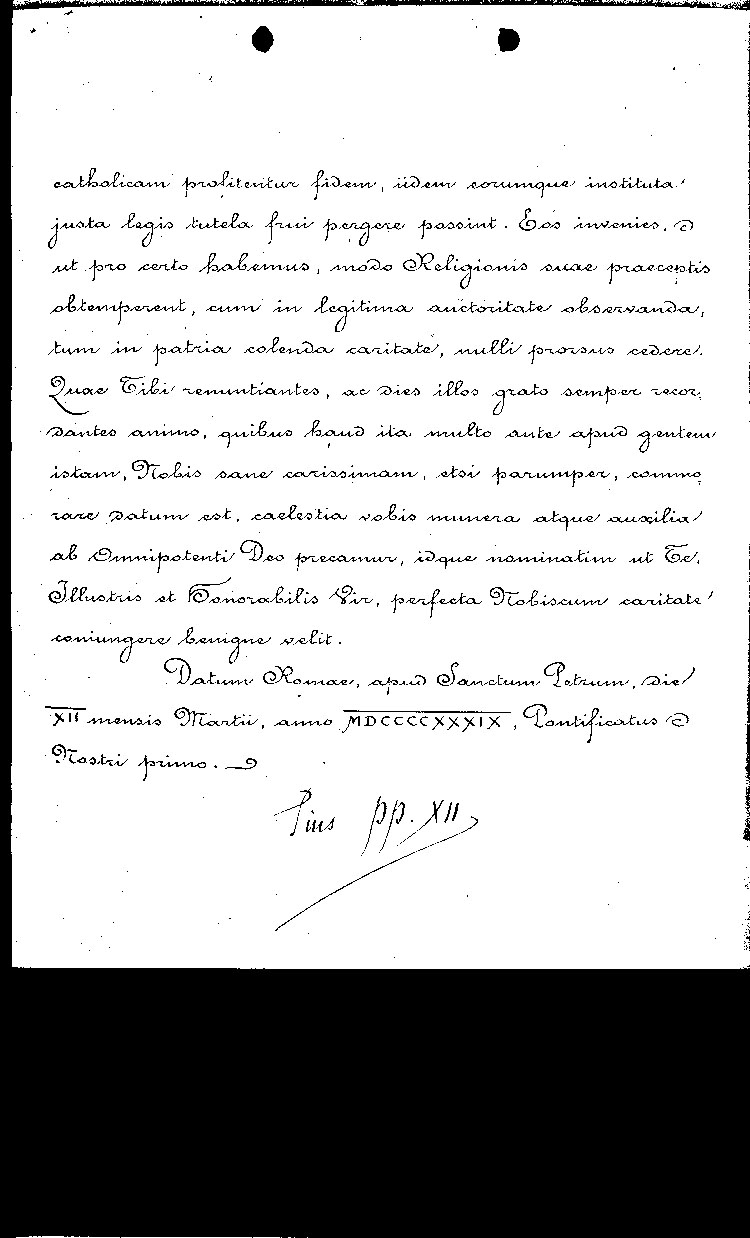 catholicam profitentur fidem, iidem eorumque instituta
justa legis tutela frui pergere possint. Eos invenies,
ut pro certo habemus, modo Religionis suae praeceptis
obtemperent, cum in legitima auctoritate observanda,
tum in patria colenda caritate, nulli prorsus cedere.
Quae Tibi renuntiantes, ac dies illos grato semper recor,
dantes animo, quibus haud ita multo ante apud gentem
istam, Nobis sane carissimam, etsi parumper, commo
rare datum est, caelestia vobis munera atque auxilia
ab Omnipotenti Deo precamur, idque nominatim ut Te,
Illustris et Honorabilis Vir, perfecta Nobiscum caritate
coniungere benigne velit.
Datum Romae, apud Sanctum Petrum, die
XII mensis Martii, anno MDCCCCXXXIX, Pontificatus
Nostri primo.
Pius pp. XII